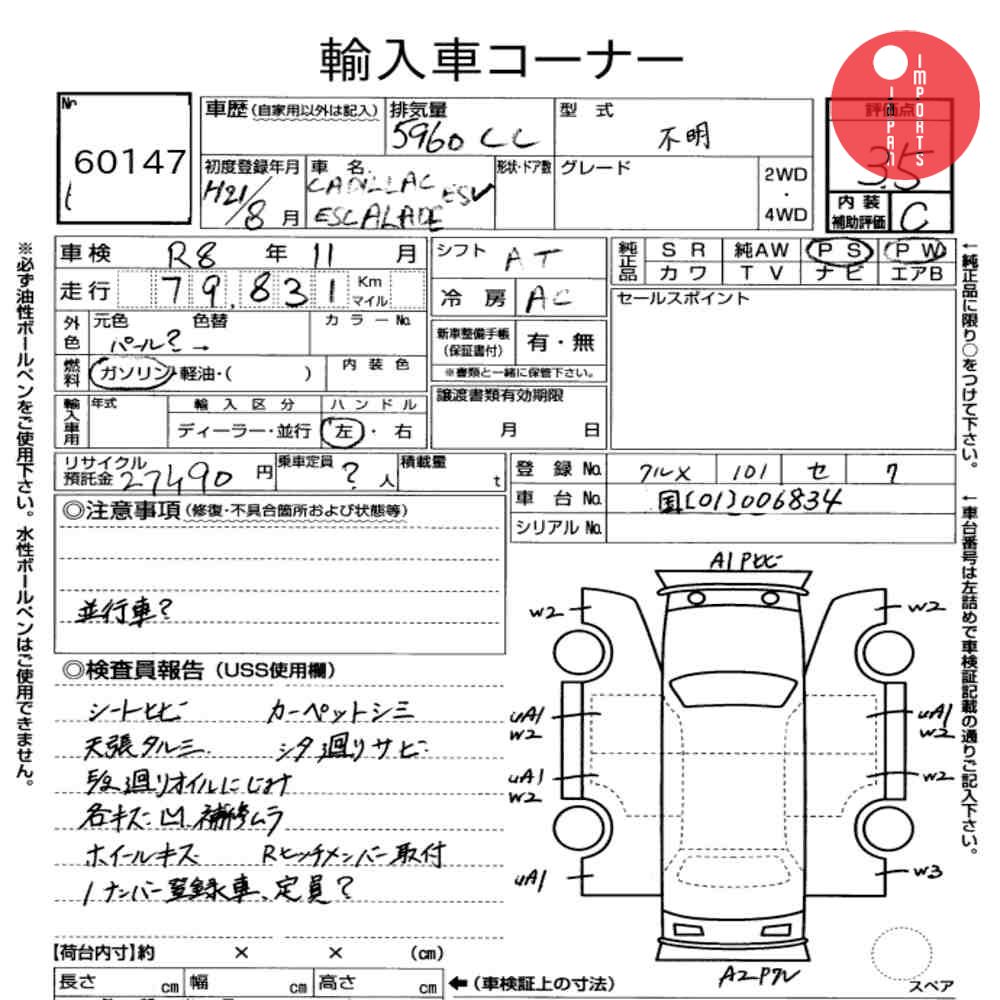 輸入車コーナー
IMPORTS
JAPAN
№
60147
車歴(自家用以外は記入)
排気量
5960 CC
型 式
不明
評価点
3.5
初度登録年月
H21/8月
車 名
CADILLAC ESV
ESCALADE
形状・ドア数
グレード
2WD
・
4WD
内 装
補助評価
C
車検 R8 年 11 月
シフト AT
純正品
S R 純AW P S P W
カワ T V ナビ エアB
走行 79,831 Km
マイル
冷 房 AC
セールスポイント
外色
元色 色替
カラー№
パール? →
新車整備手帳
(保証書付)
有・無
※書類と一緒に保管下さい。
燃料
ガソリン・軽油・( )
内 装 色
譲渡書類有効期限
月 日
輸入車用
年式
輸 入 区 分
ハ ン ド ル
ディーラー・並行
左・右
リサイクル
預託金
27490 円
乗車定員
? 人
積載量
t
登 録 №
クルメ 101 セ 7
車 台 №
国[01]006834
シリアル №
◎注意事項(修復・不具合箇所および状態等)
並行車?
◎検査員報告(USS使用欄)
シートヒビ カーペットシミ
天張タルミ シタ廻リサビ
E/g廻リオイルにじみ
各キズ凹、補修ムラ
ホイールキズ Rヒッチメンバー取付
1ナンバー登録車、定員?
【荷台内寸】約 × × (cm)
長さ cm 幅 cm 高さ cm
←(車検証上の寸法)
※必ず油性ボールペンをご使用下さい。水性ボールペンはご使用できません。
←純正品に限り○をつけて下さい。
←車台番号は左詰めで車検証記載の通りご記入下さい。
A1Pヒビ
W2
W2
uA1
W2
uA1
W2
uA1
W2
uA1
W2
uA1
W3
スペア